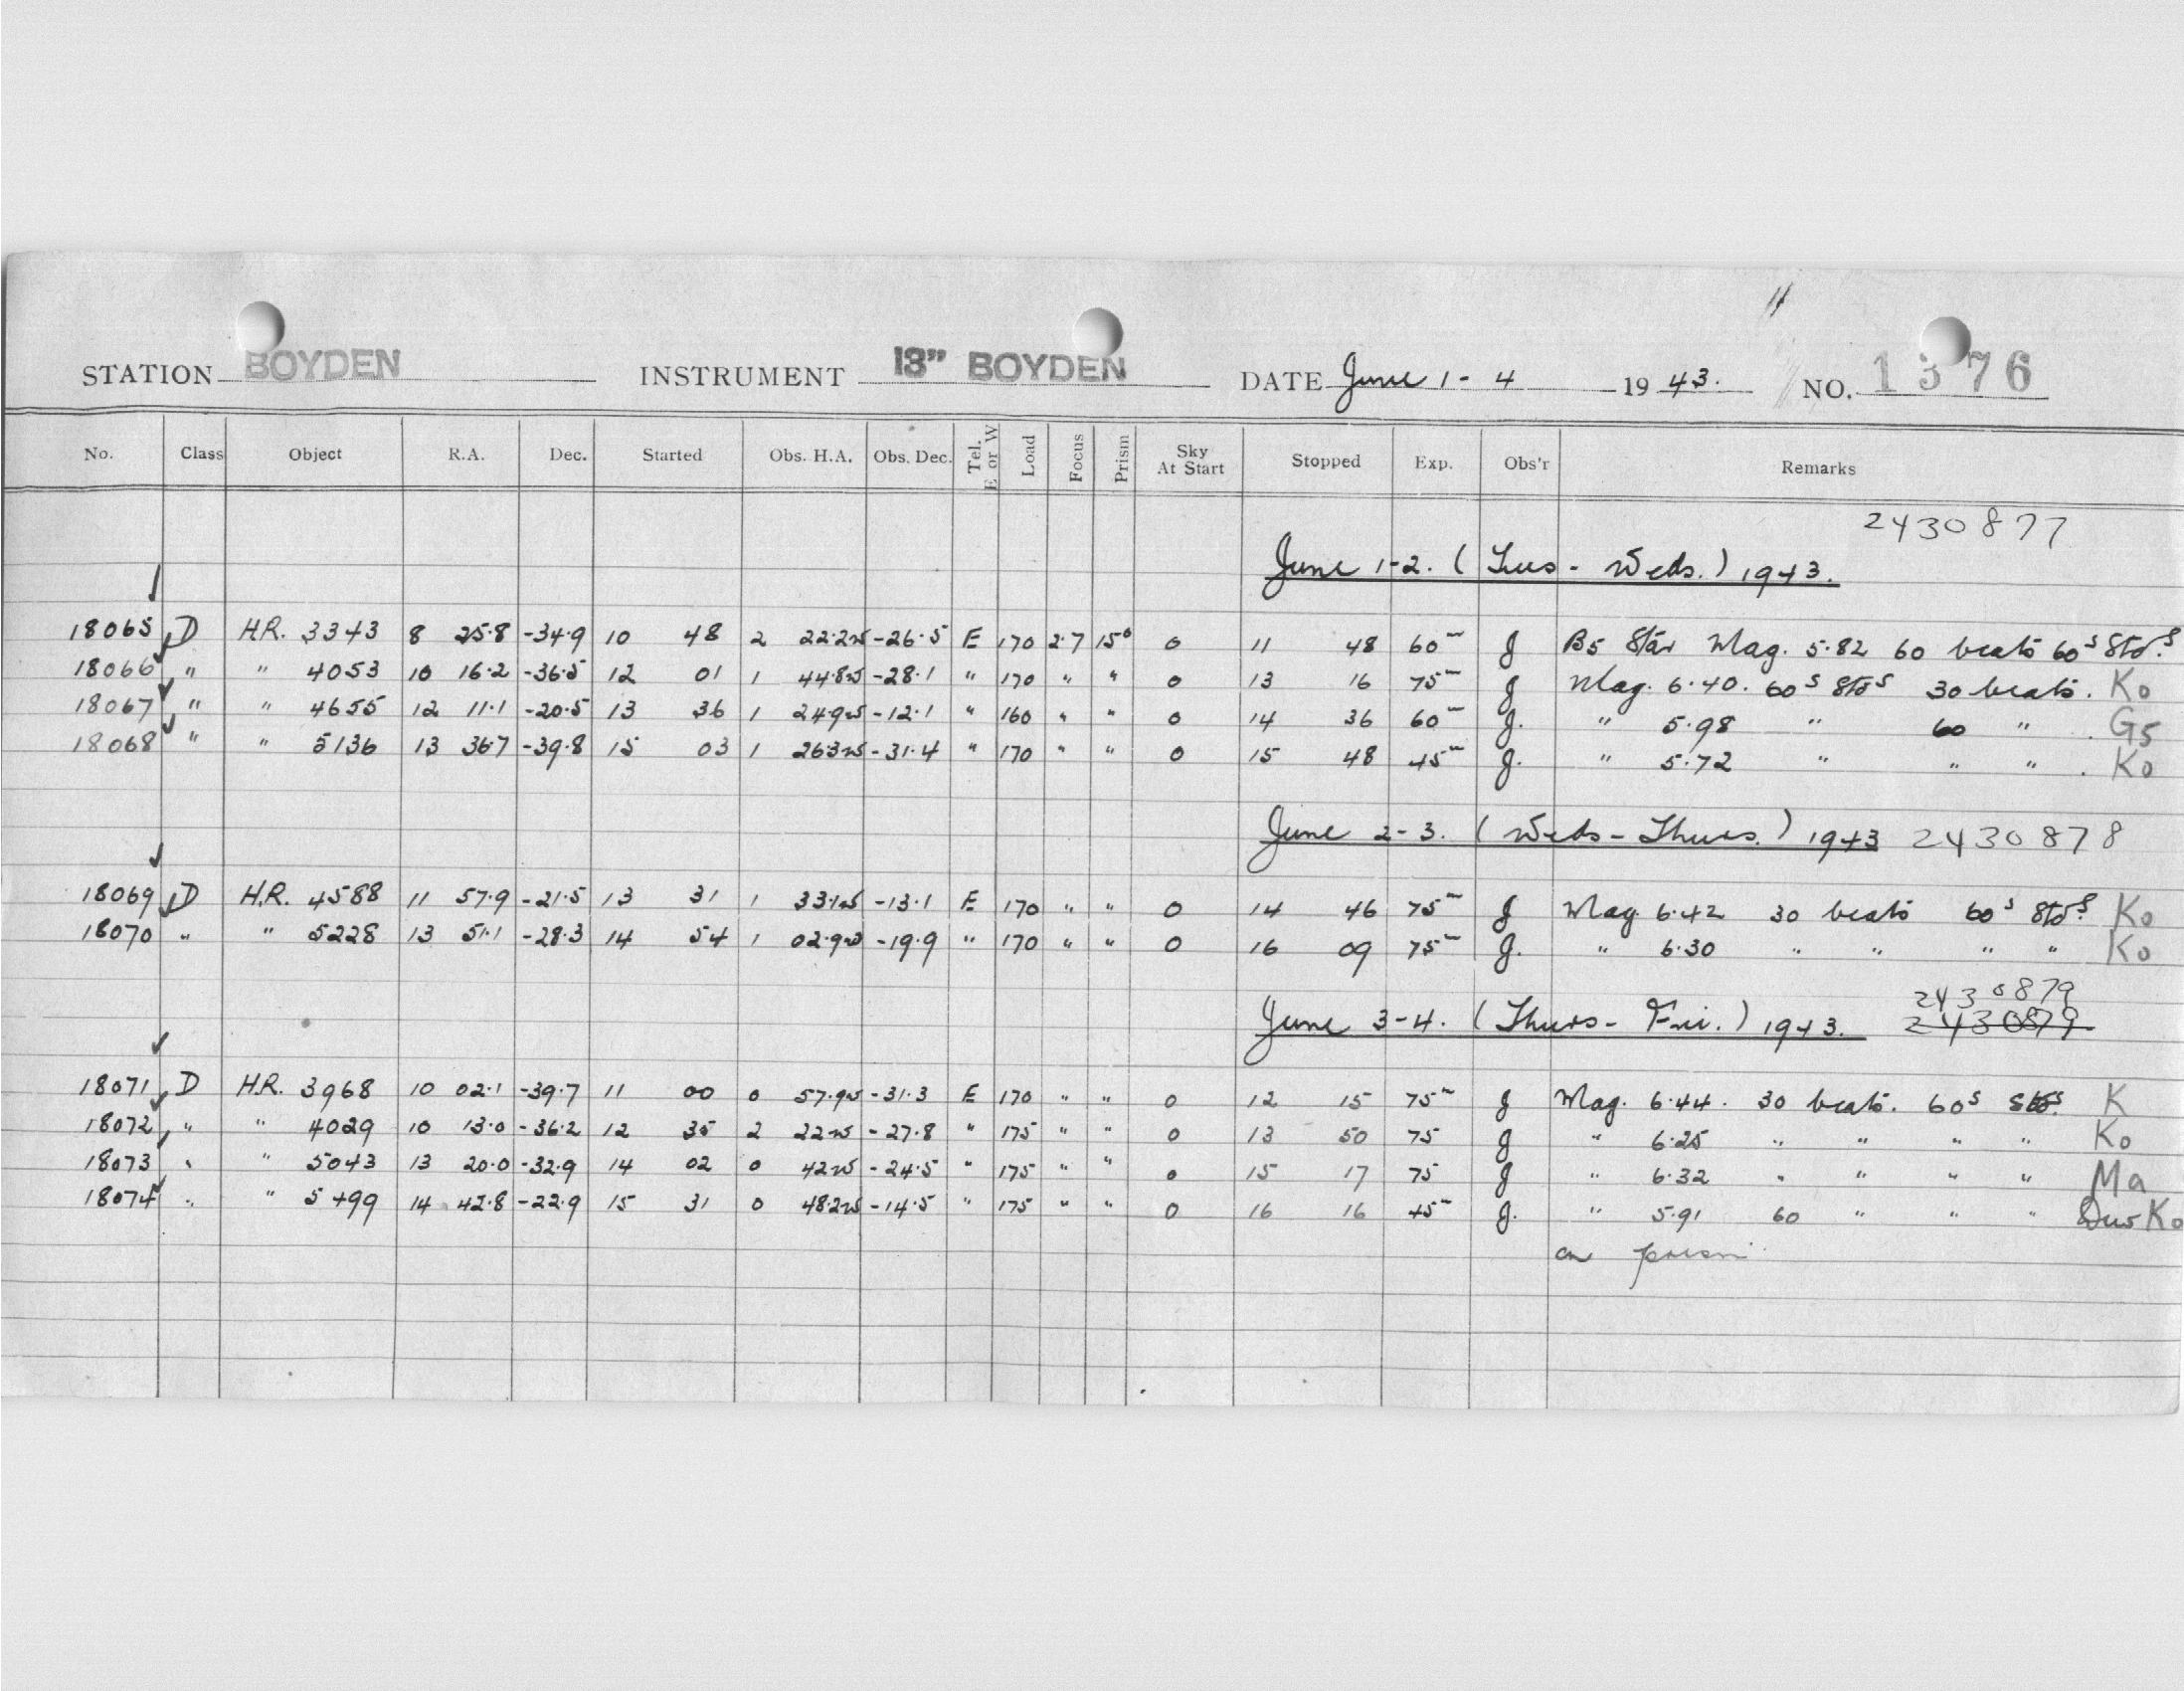 STATION BOYDEN INSTRUMENT 13" BOYDEN DATE June 1 - 4 1943. NO. 1376
No. Class Object R.A. Dec. Started Obs. H.A. Obs. Dec. Tel. E or W Load Focus Prism Sky At Start Stopped Exp. Obs'r Remarks
2430877
June 1-2. (Tues - Weds.) 1943.
18065 D H.R. 3343 8 25.8 -34.9 10 48 2 22.2w -26.5 E 170 2.7 15° 0 11 48 60m J B5 Star Mag. 5.82 60 beats 60s Stds.
18066 " " 4053 10 16.2 -36.5 12 01 1 44.8w -28.1 " 170 " " 0 13 16 75m J Mag. 6.40. 60s Stds 30 beats. Ko
18067 " " 4655 12 11.1 -20.5 13 36 1 24.9w -12.1 " 160 " " 0 14 36 60m J. " 5.98 " 60 " . G5
18068 " " 5136 13 36.7 -39.8 15 03 1 26.3w -31.4 " 170 " " 0 15 48 45m J. " 5.72 " " " . Ko
June 2-3. (Weds - Thurs.) 1943 2430878
18069 D H.R. 4588 11 57.9 -21.5 13 31 1 33.1w -13.1 E 170 " " 0 14 46 75m J Mag 6.42 30 beats 60s Stds. Ko
18070 " " 5228 13 51.1 -28.3 14 54 1 02.9w -19.9 " 170 " " 0 16 09 75m J. " 6.30 " " " " Ko
2430879
June 3-4. (Thurs - Fri.) 1943. 2430879
18071 D H.R. 3968 10 02.1 -39.7 11 00 0 57.9w -31.3 E 170 " " 0 12 15 75m J Mag. 6.44. 30 beats. 60s Stds. K
18072 " " 4029 10 13.0 -36.2 12 35 2 22w -27.8 " 175 " " 0 13 50 75 J " 6.25 " " " " Ko
18073 " " 5043 13 20.0 -32.9 14 02 0 42w -24.5 " 175 " " 0 15 17 75 J " 6.32 " " " " Ma
18074 " " 5499 14 42.8 -22.9 15 31 0 48.2w -14.5 " 175 " " 0 16 16 45m J. " 5.91 60 " " " Dew Ko
on prism